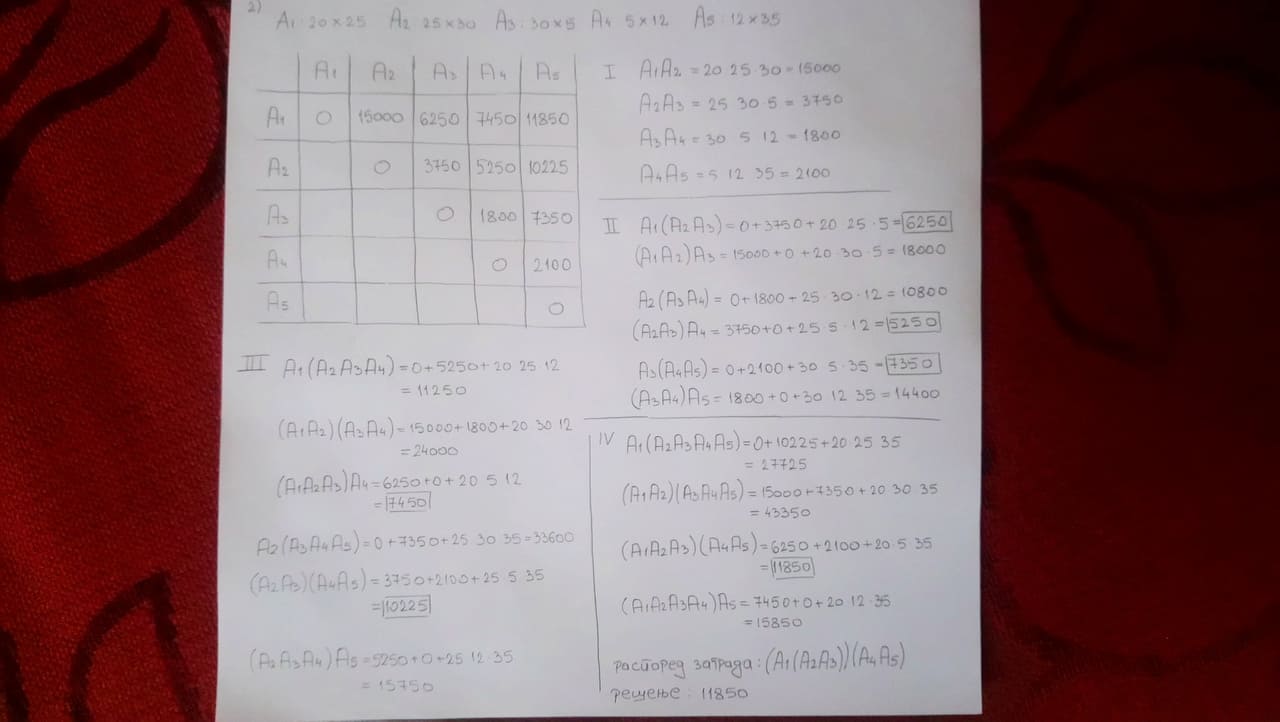 2)
A1: 20×25 A2: 25×30 A3: 30×5 A4 5×12 A5: 12×35
A1 A2 A3 A4 A5
A1 0 15000 6250 7450 11850
A2 0 3750 5250 10225
A3 0 1800 7350
A4 0 2100
A5 0
I A1A2 = 20 25·30 = 15000
A2A3 = 25 30·5 = 3750
A3A4 = 30 5 12 = 1800
A4A5 = 5 12 35 = 2100
II A1(A2A3) = 0+3750+20 25·5 = 6250
(A1A2)A3 = 15000+0+20·30·5 = 18000
A2(A3A4) = 0+1800+25·30·12 = 10800
(A2A3)A4 = 3750+0+25·5·12 = 5250
A3(A4A5) = 0+2100+30 5·35 = 7350
(A3A4)A5 = 1800+0+30 12 35 = 14400
III A1(A2A3A4) = 0+5250+20 25 12
= 11250
(A1A2)(A3A4) = 15000+1800+20 30 12
= 24000
(A1A2A3)A4 = 6250+0+20 5 12
= 7450
A2(A3A4A5) = 0+7350+25 30 35 = 33600
(A2A3)(A4A5) = 3750+2100+25 5·35
= 10225
(A2A3A4)A5 = 5250+0+25 12·35
= 15750
IV A1(A2A3A4A5) = 0+10225+20 25 35
= 27725
(A1A2)(A3A4A5) = 15000+7350+20 30 35
= 43350
(A1A2A3)(A4A5) = 6250+2100+20·5 35
= 11850
(A1A2A3A4)A5 = 7450+0+20 12·35
= 15850
распоред заграда: (A1(A2A3))(A4A5)
решење: 11850